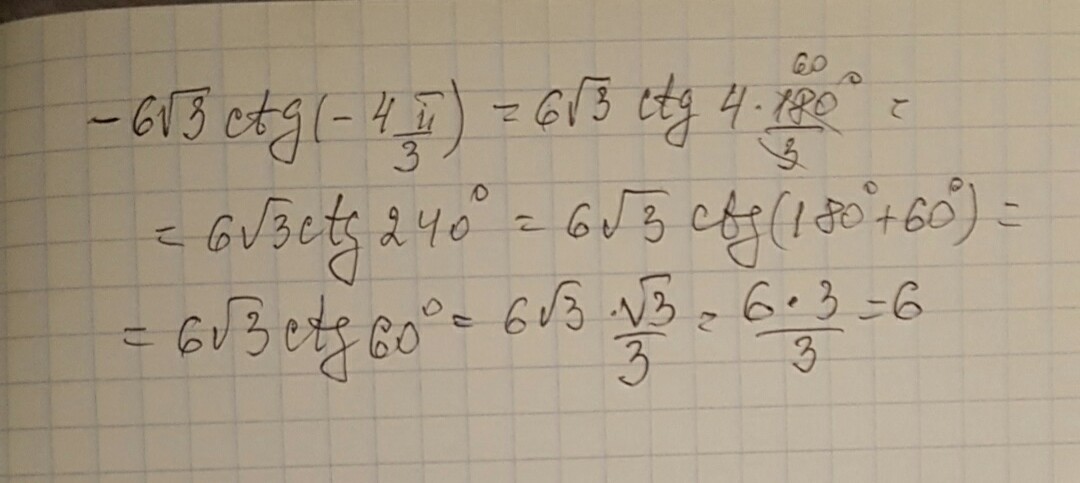 -6√3 ctg(-4π/3) = 6√3 ctg 4·180°/3 = 60
= 6√3 ctg 240° = 6√3 ctg(180°+60°) =
= 6√3 ctg 60° = 6√3 · √3/3 = 6·3/3 = 6